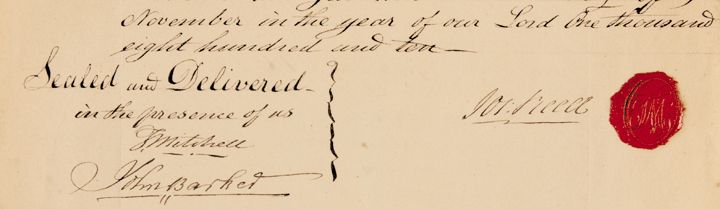 November in the year of our Lord One thousand
eight hundred and ten
Sealed and Delivered
in the presence of us
J. Mitchell
John Barker
Jos.